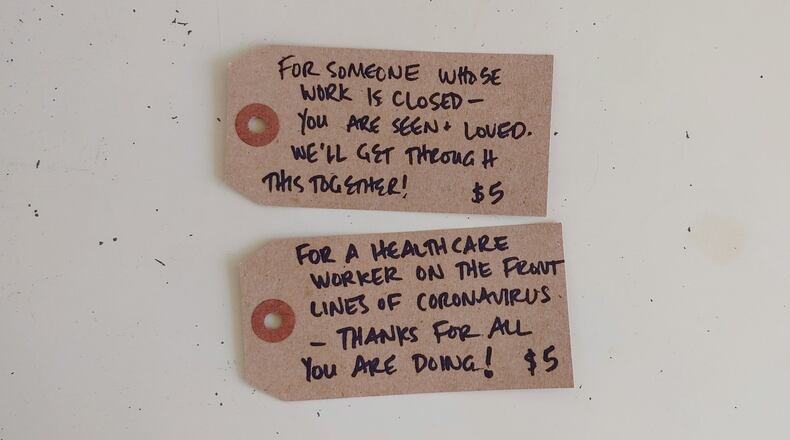 FOR SOMEONE WHOSE
WORK IS CLOSED —
YOU ARE SEEN + LOVED.
WE'LL GET THROUGH
THIS TOGETHER! $5
FOR A HEALTHCARE
WORKER ON THE FRONT
LINES OF CORONAVIRUS.
— THANKS FOR ALL
YOU ARE DOING! $5